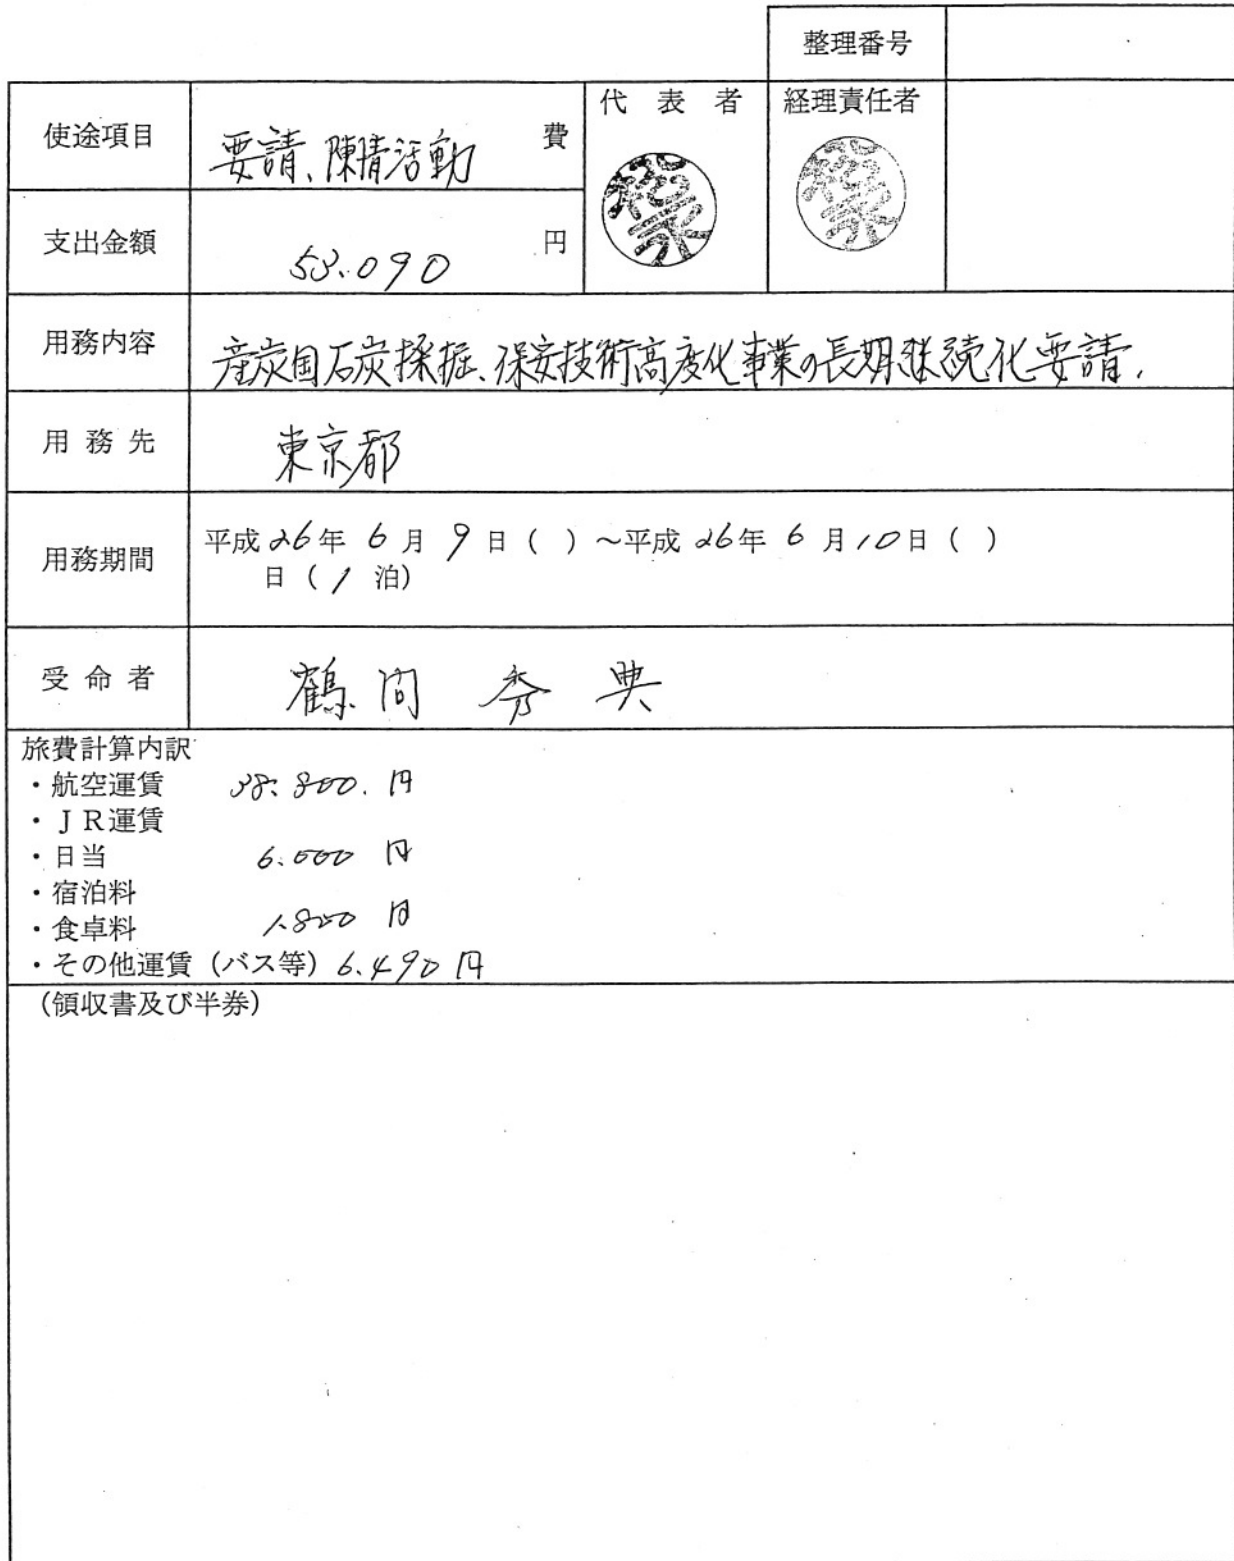 整理番号
使途項目 要請、陳情活動 費 代表者 経理責任者
支出金額 53.090 円
用務内容 産炭国石炭採掘、保安技術高度化事業の長期継続化要請.
用務先 東京都
用務期間 平成26年 6月 9日 ( ) ～平成 26年 6月10日 ( )
日 ( 1 泊)
受命者 鶴間 秀典
旅費計算内訳
・航空運賃 38.800.円
・ＪＲ運賃
・日当 6.000 円
・宿泊料
・食卓料 1.800 円
・その他運賃（バス等）6.490円
（領収書及び半券）